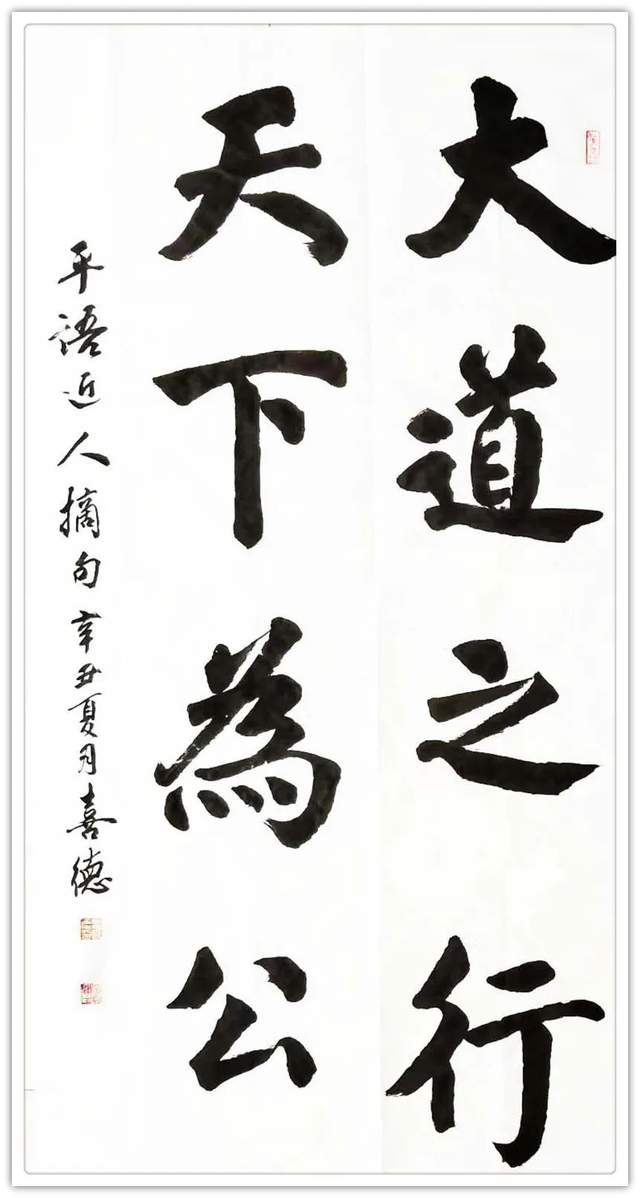 大道之行
天下為公
平語近人摘句辛丑夏月喜德